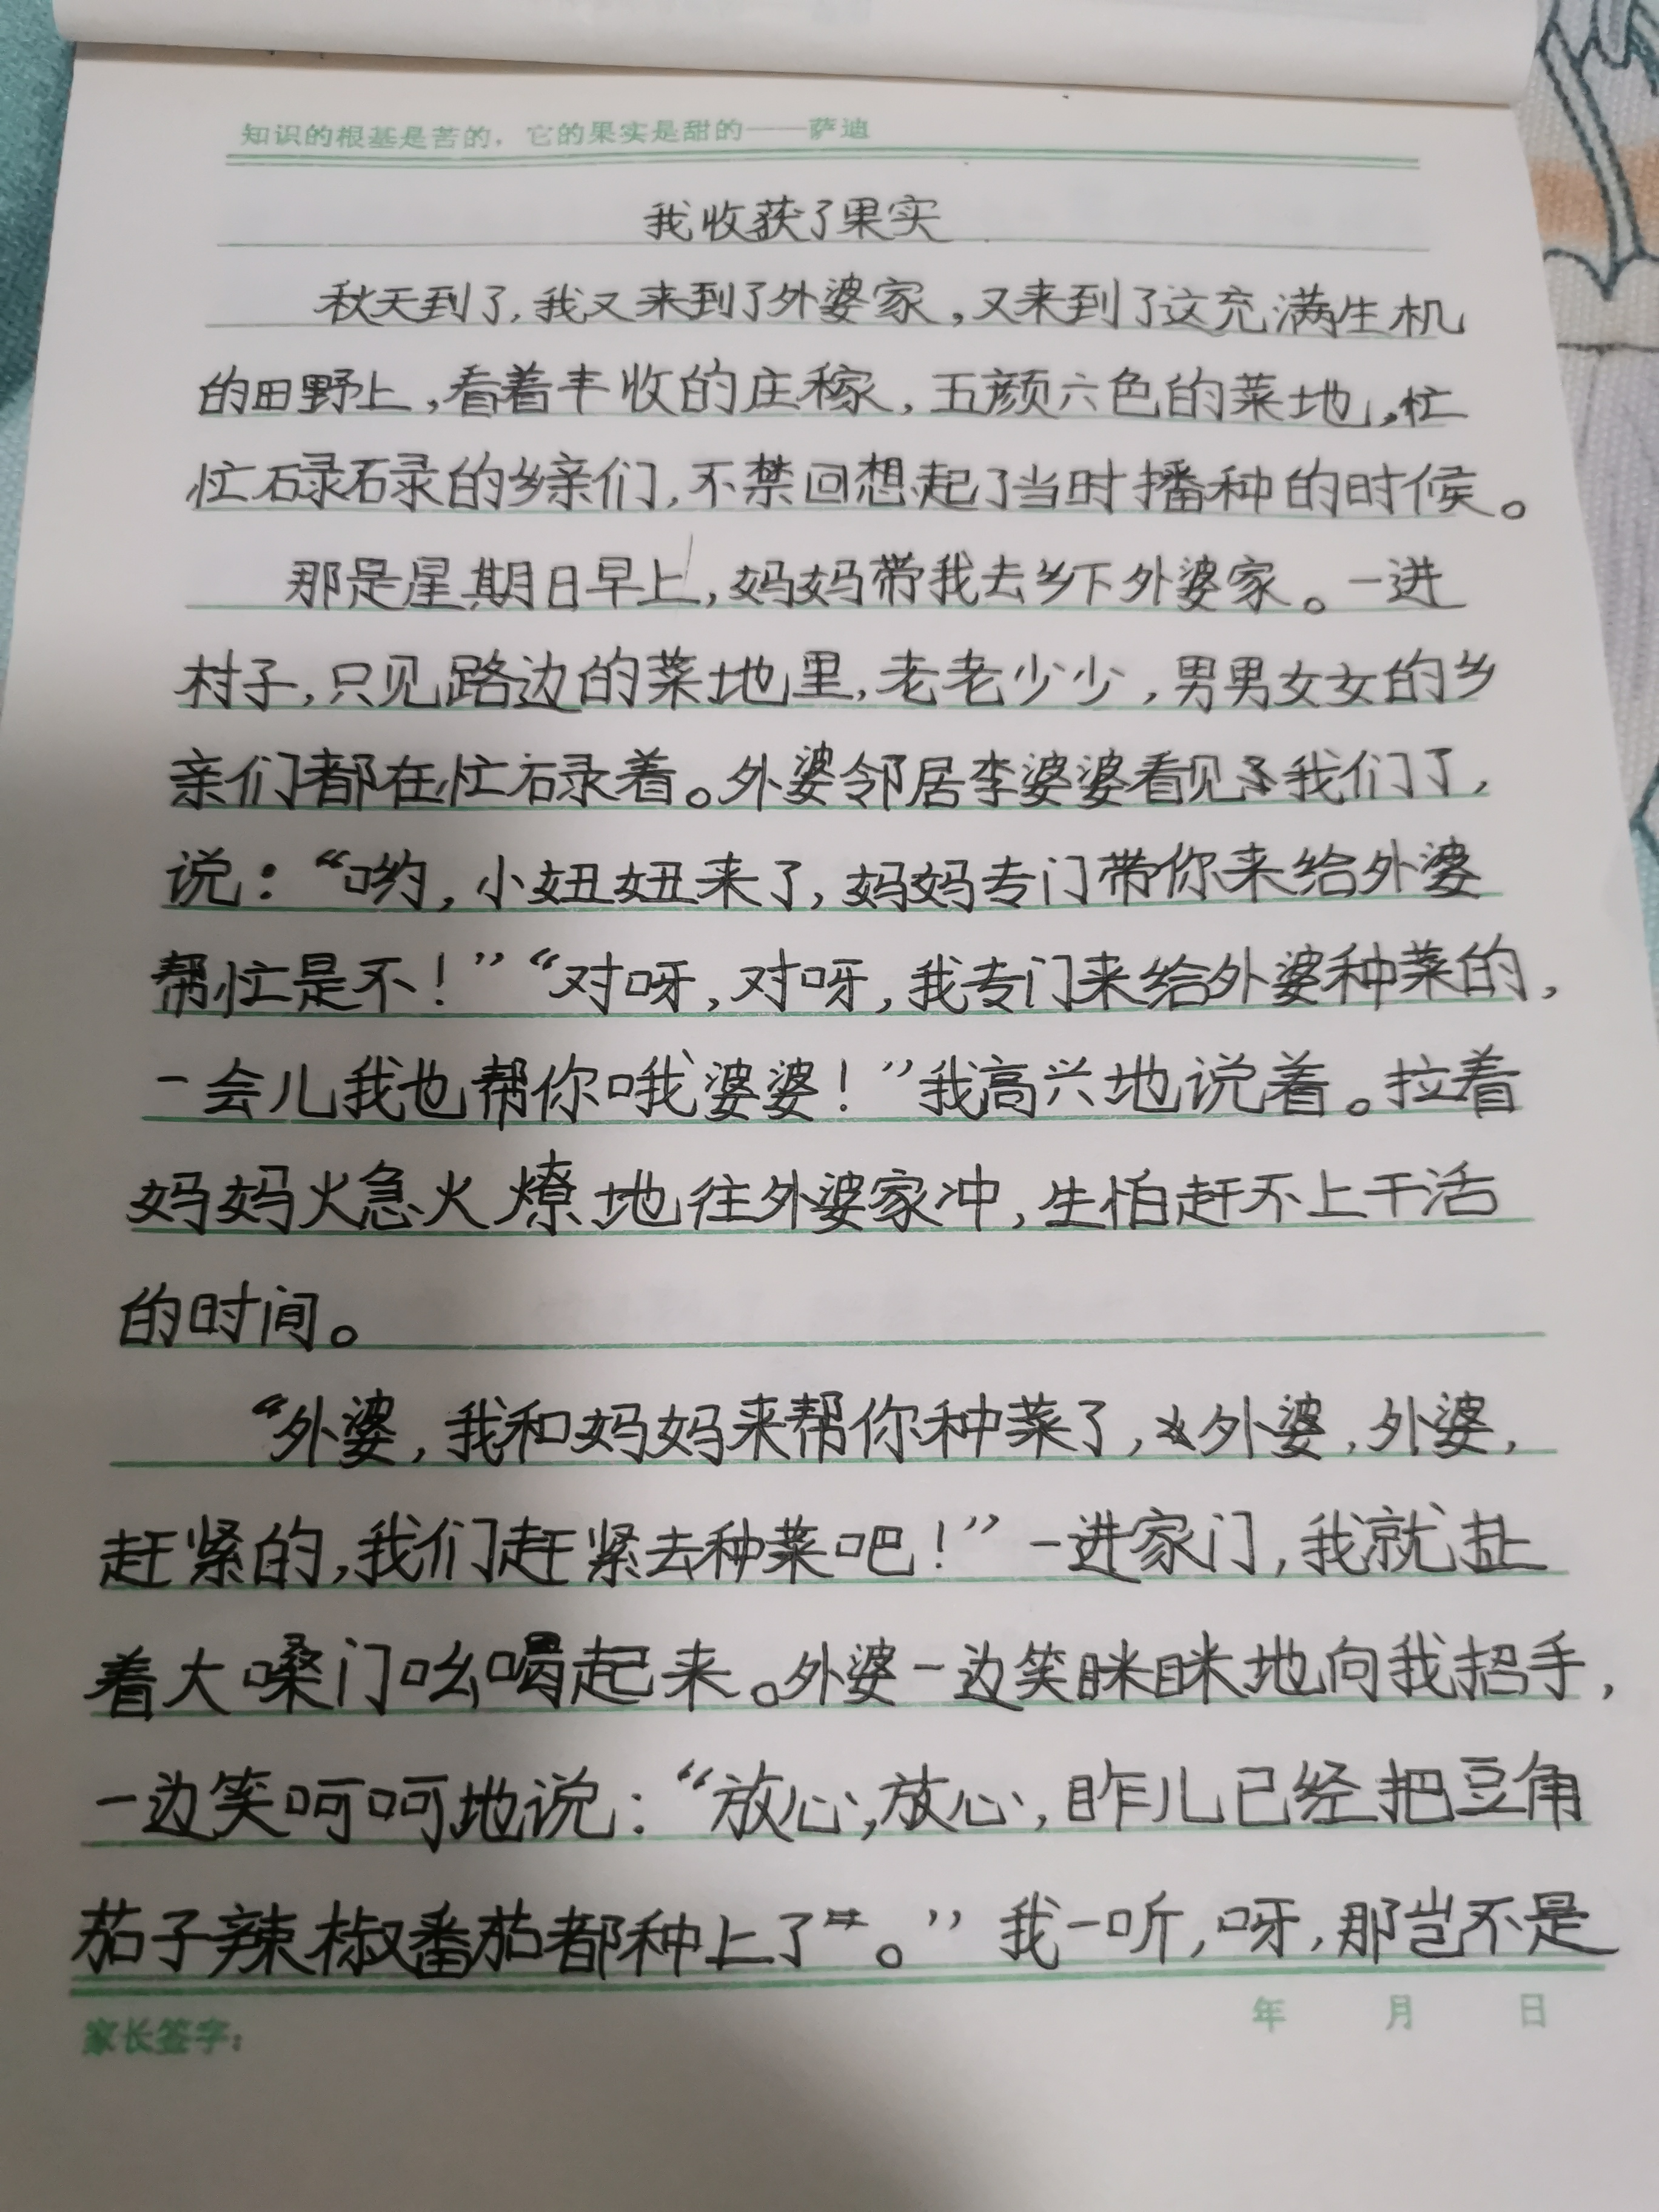 知识的根基是苦的，它的果实是甜的——萨迪
我收获了果实
秋天到了,我又来到了外婆家,又来到了这充满生机
的田野上,看着丰收的庄稼,五颜六色的菜地,忙
忙碌碌的乡亲们,不禁回想起了当时播种的时候。
那是星期日早上,妈妈带我去乡下外婆家。一进
村子,只见路边的菜地里,老老少少,男男女女的乡
亲们都在忙碌着。外婆邻居李婆婆看见我们了,
说:“哟,小妞妞来了,妈妈专门带你来给外婆
帮忙是不!”“对呀,对呀,我专门来给外婆种菜的,
一会儿我也帮你哦婆婆!”我高兴地说着。拉着
妈妈火急火燎地往外婆家冲,生怕赶不上干活
的时间。
“外婆,我和妈妈来帮你种菜了,外婆,外婆,
赶紧的,我们赶紧去种菜吧!”一进家门,我就扯
着大嗓门吆喝起来。外婆一边笑眯眯地向我招手,
一边笑呵呵地说:“放心,放心,昨儿已经把豆角
茄子辣椒番茄都种上了。”我一听,呀,那岂不是
家长签字: 年 月 日